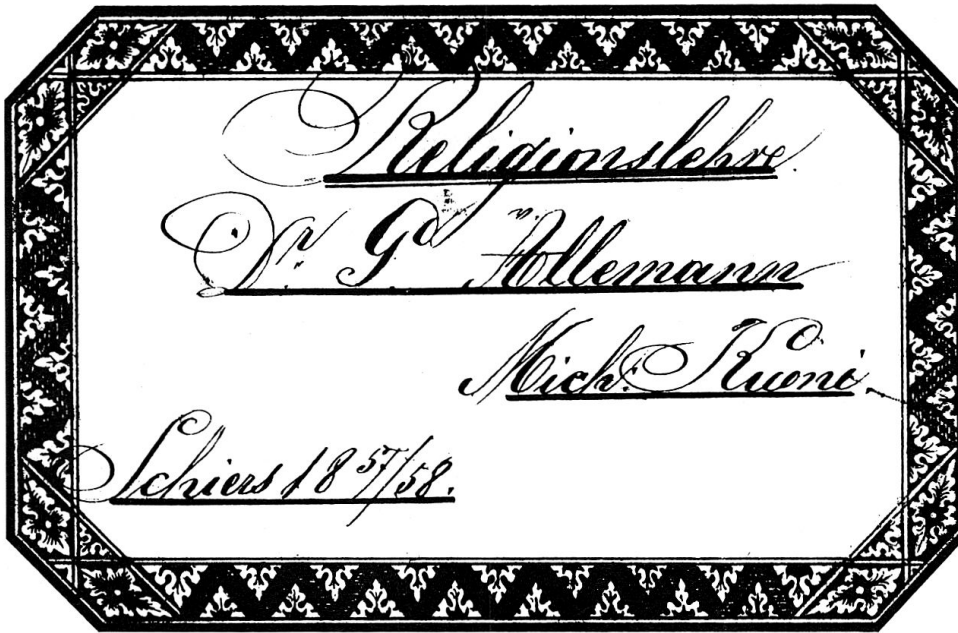 Religionslehre.
Dr. Gd Allemann
Mich: Kuoni.
Schiers 1857/58.